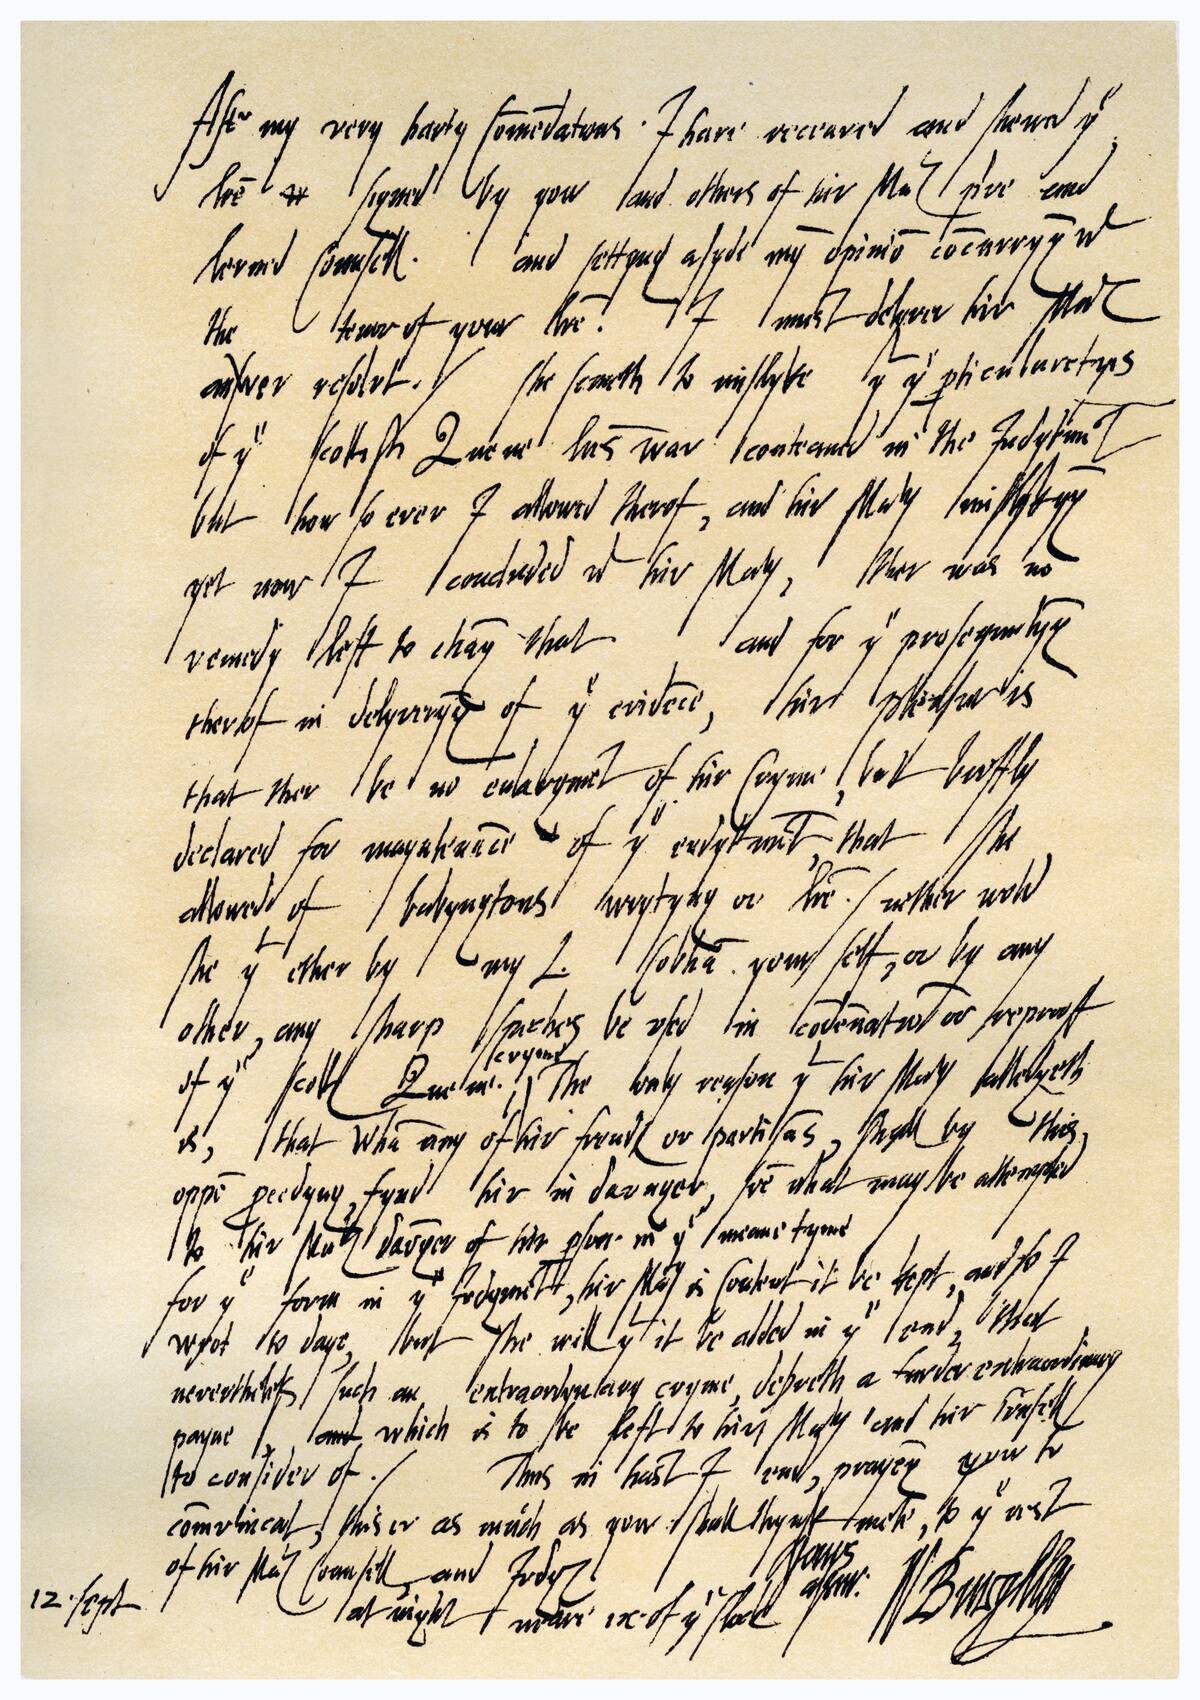 After my very harty Comēdatiōns. I have receaved and shewed yͤ
lrē signed by yow and others of hir Maᵗˢ sive and
lerned Counsell. and settyng asyde my opiniō cōcurryg wᵗ
the tenor of your lrē. I must delyver hir Maᵗˢ
answer resolut./ She semeth to mislyke yᵗ yͤ pticularetyes
of yͤ scottish Quene hēs war conteaned in the Indytemēt
but how so ever I allowed therof, and hir Maᵗy mislykyg
yet now I concluded wᵗ hir Maᵗy, ther was no
remedy left to chāg that and for yͤ prosequutyg
therof in delyveryg of yͤ evidēce, hir pleasur is
that ther be no enlargmēt of hir Cryme, but breffly
declared for mayntenāce of yͤ endytmēt, that she
allowed of babyngtons wrytyng or lrē./ nether wold
she yᵗ ether by my L. Cobhā. your self, or by any
other, any sharp speches be used in cōdēnatiō or reproff
of yͤ scottˢ Quene.
cryme
, The only reason yᵗ hir Maᵗy alledgeth
is, that whā any of hir frendˢ or partisās, shall by this
oppē pcedyng, fynd hir in daunger, what may be attempted
to hir Maᵗˢ dāger of hir pson in yͤ meane tyme
for yͤ form in yͤ Judgmēt, hir Maᵗy is content it be kept, and so I
wrot to daye, but she will yᵗ it be added in yͤ end, that
nevertheless such an extraordynary cryme, deserveth a furder extraordinary
payne, and which is to be left to hir Maᵗy and hir Cōnsell
to consider of./ Thus in hast I end, prayeg yow to
cōmvnicat, this or as much as yow shall thynk mete, to yͤ rest
of hir Maᵗˢ Counsell, and Judgˢ
yours
assur.
W Burghley
12. Sept at night neare ix. of yͤ clock